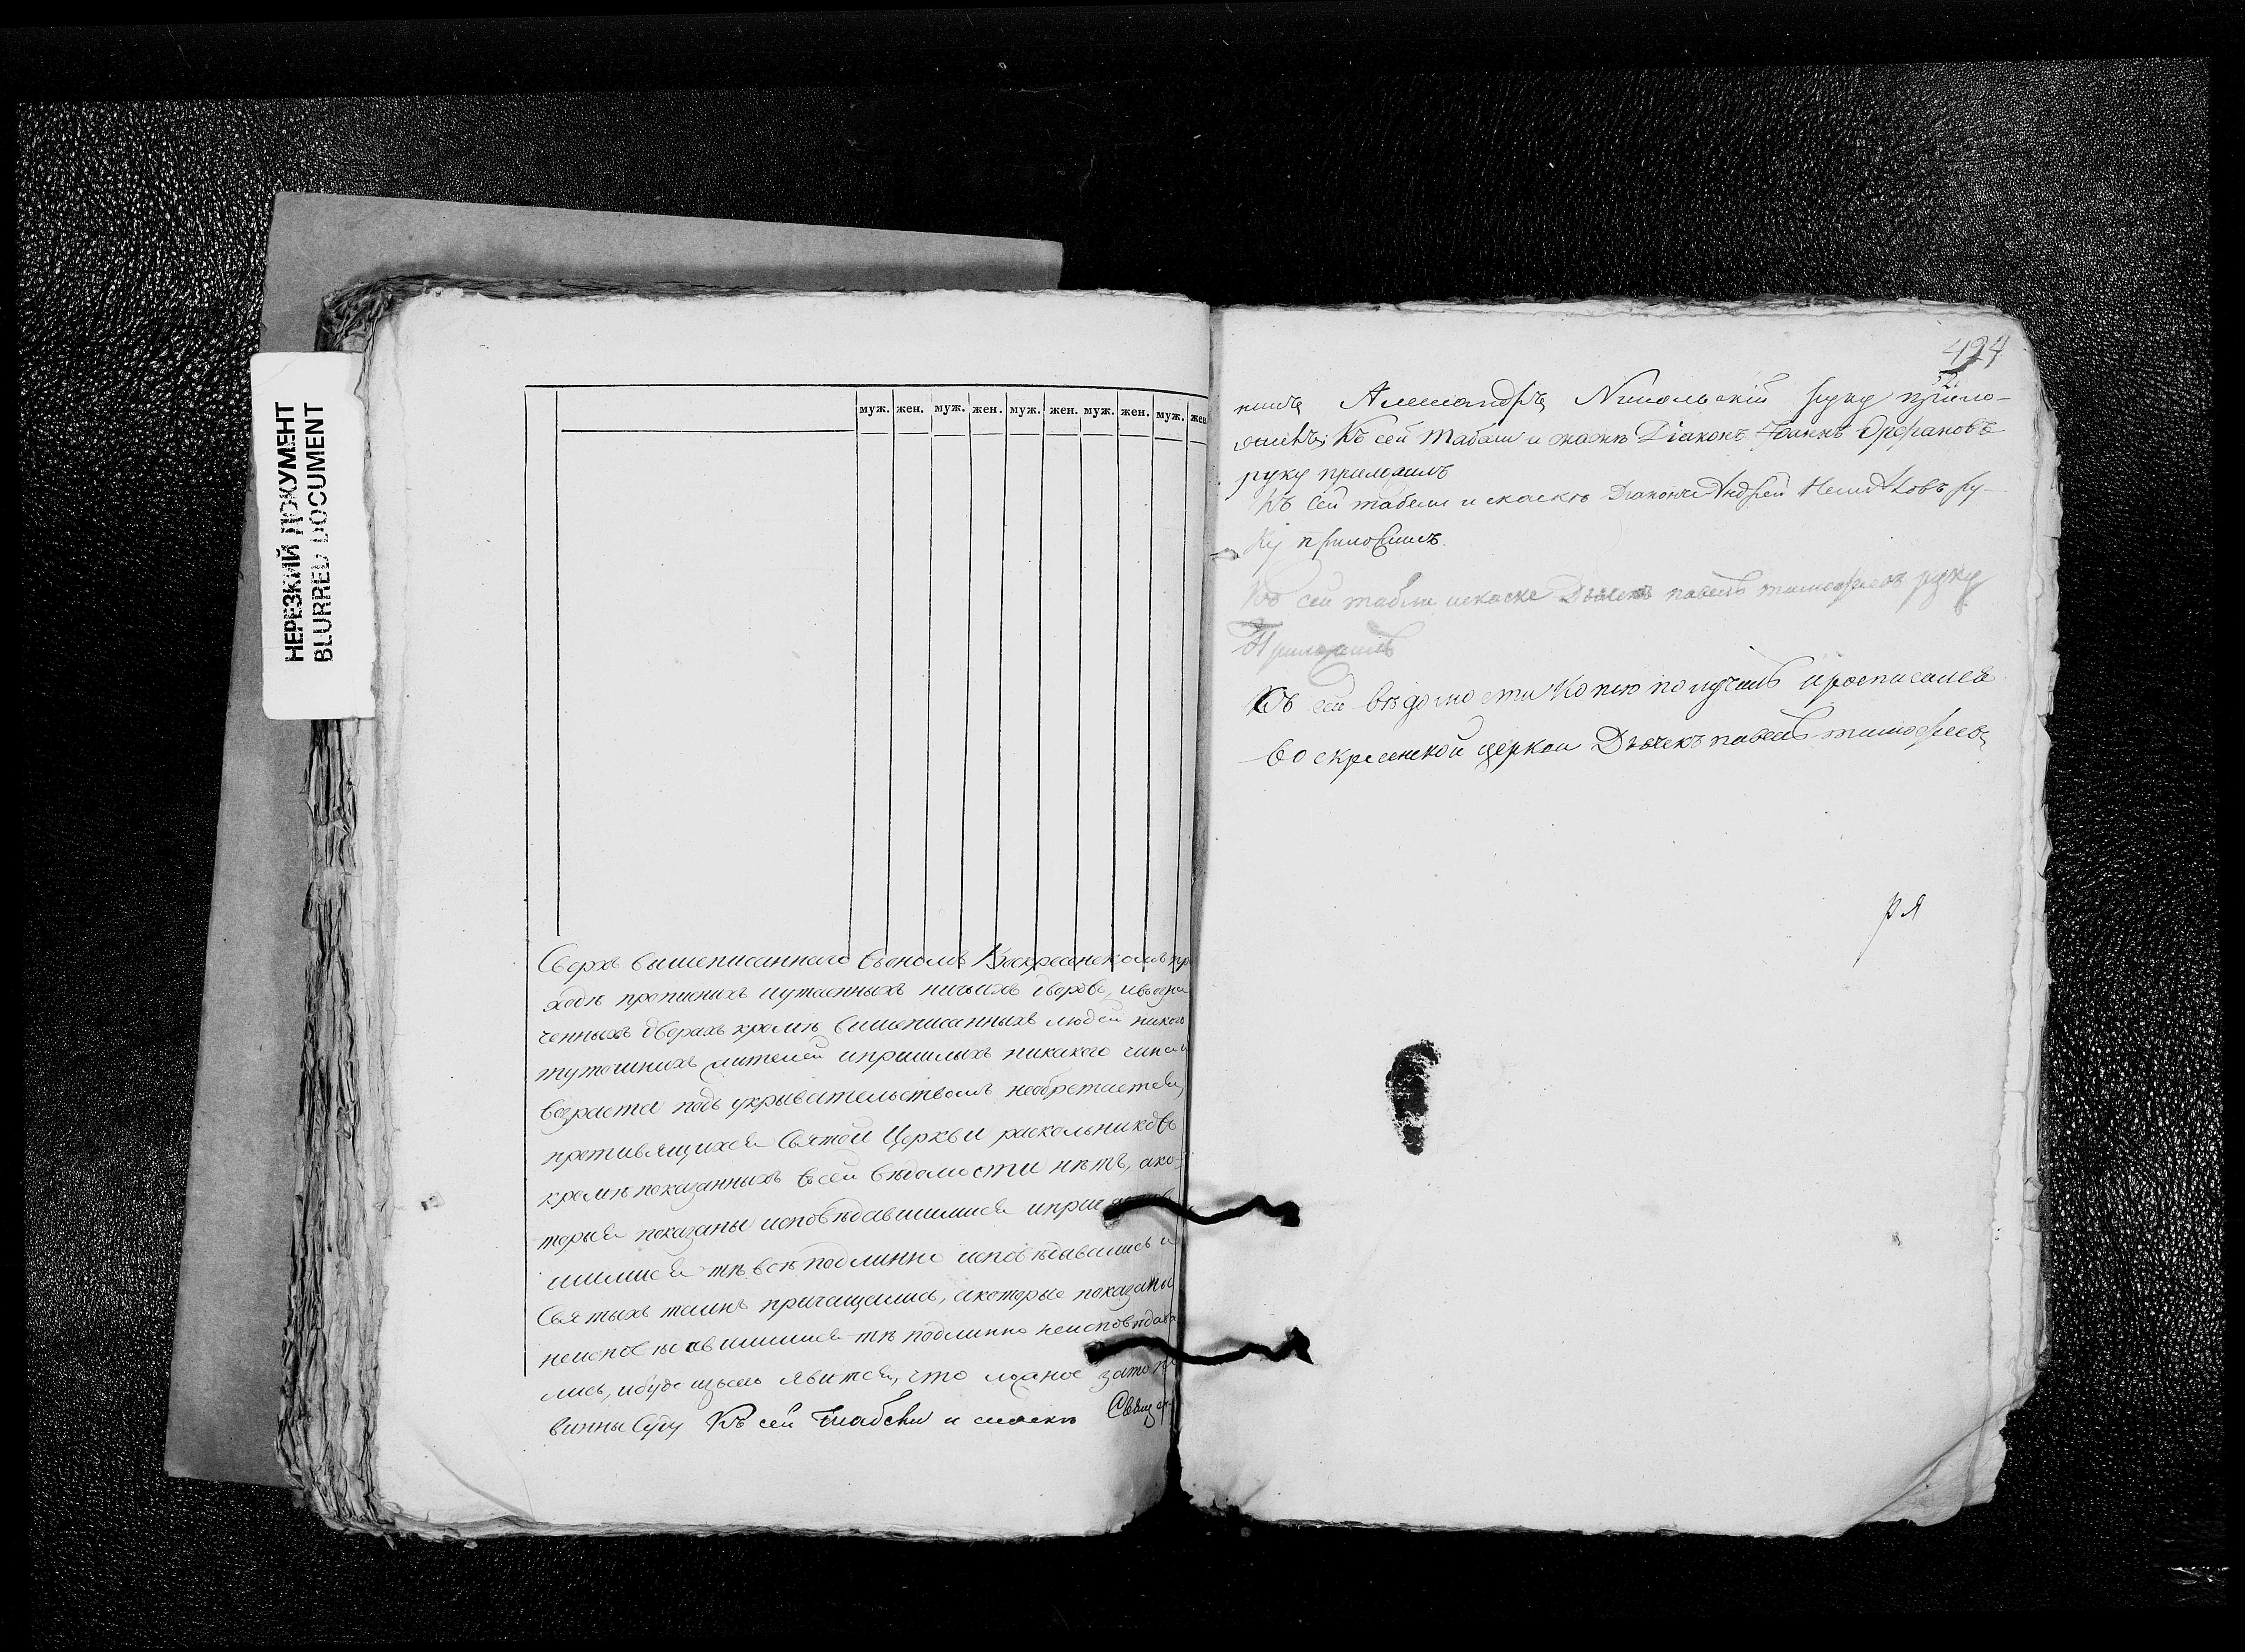 НЕРЕЗКИЙ ДОКУМЕНТ
BLURRED DOCUMENT
муж. жен. муж. жен. муж. жен. муж. жен. муж. жен
Сверхъ вышеписанного въономъ Воскресенскомъ при
ходѣ прописныхъ иутаенныхъ ничьихъ дворовъ, ивъозна
ченныхъ дворахъ кромѣ вышеписанныхъ людей никого
тутошнихъ жителей ипришлыхъ никакого чина и
возраста подъ укрывательствомъ необретается,
противящихся Святой Церкви раскольниковъ
кромѣ показанныхъ въсей вѣдомости нѣтъ, ако-
торыя показаны исповѣдавшимися ипричастив
шимися тѣ всѣ подлинно исповѣдавались и
Святыхъ таинъ причащались, акоторые показаны
неисповѣдавшимися тѣ подлинно неисповѣдова
лись, ибуде изъсего явится, что ложное зато по
винны Суду Къ сей табели и скаскѣ Священ
424
никъ Александръ Никольскій руку прило-
жилъ; Къ сей табели и скаскѣ Діаконъ Іоаннъ
руку приложилъ
Къ сей табели и скаскѣ Андрей ру-
ку приложилъ.
Къ сей табели искаске Дьячекъ павелъ тимофеевъ руку
Приложилъ
Къ сей вѣдомости Копию получилъ иросписался
воскресенской церкви Дьячекъ павелъ тимофеевъ